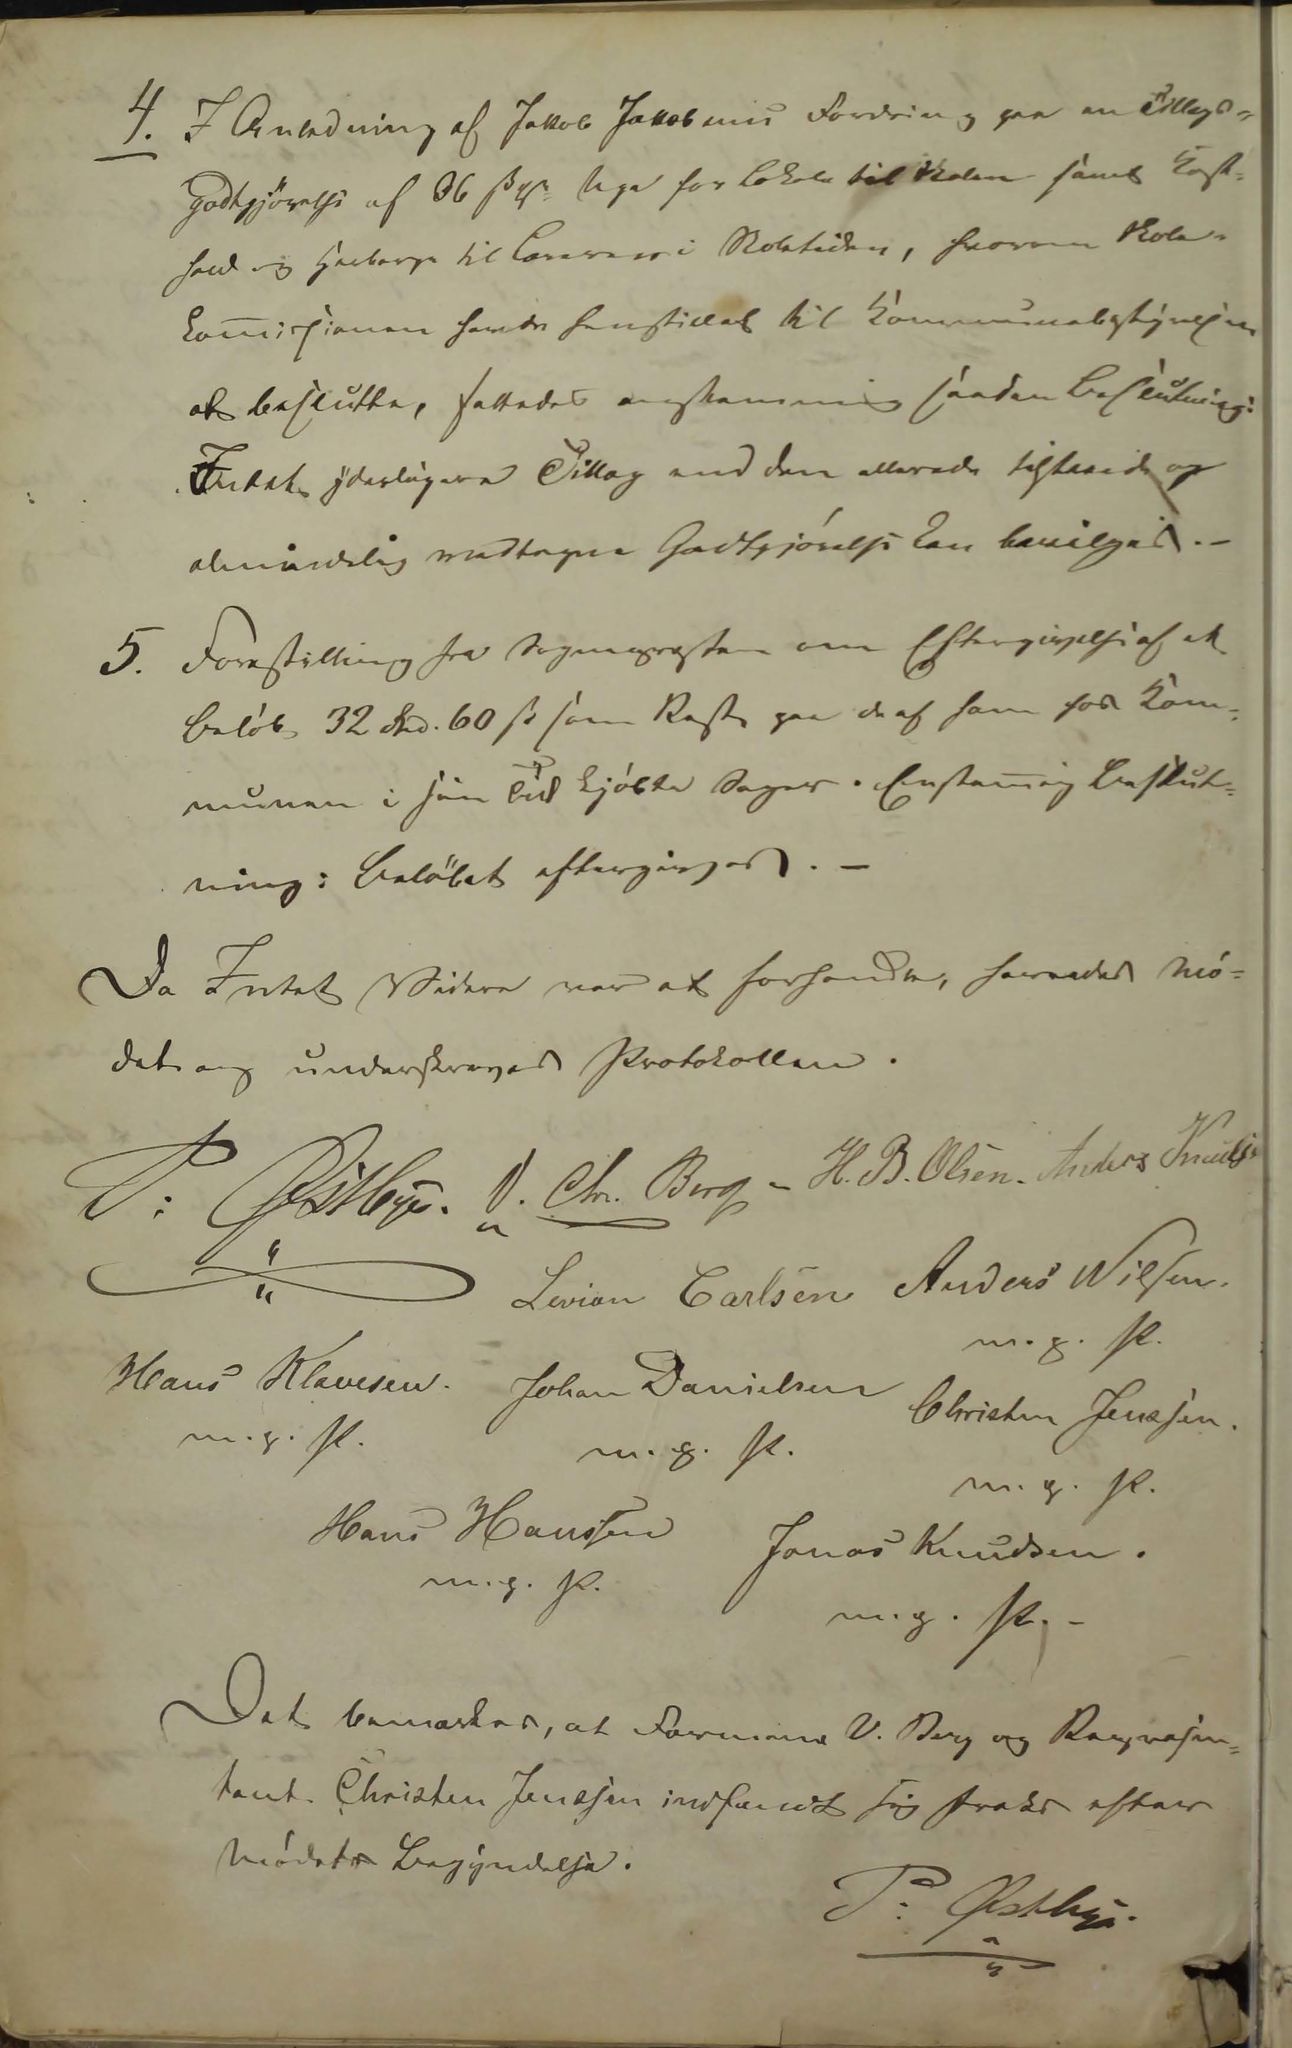 4. I Anledning af Jakob Jakobsens Fordring paa en Tillægs-
godtgjørelse af 36 ß pr. Uge for Lokale til Skolen samt Kost-
hold og Herberge til Læreren i Skoletiden, hvorom Skole-
kommissionen havde henstillet til Kommunebestyrelsen
at beslutte, fattedes enstemmig saadan Beslutning:
Intet yderligere Tillæg end den allerede tilstaaede og
almindelig vedtagne Godtgjørelse kan bevilges. -
5. Forestilling fra Sognepresten om Eftergivelse af et
Beløb 32 Spd. 60 ß som Rest paa de af ham for Kom-
munen i sin Tid kjøbte Sager. Enstemmig Beslut-
ning: Beløbet eftergives. -
Da Intet Videre var at forhandle, hævedes Mö-
det og underskreves Protokollen.
P: Østbye. V. Chr. Berg - H. B. Olsen. Anders Knuds
Levion Carlsen Anders Nilsen.
m. g. P.
Hans Klavesen. Johan Danielsen Christen Jenssen.
m. g. P. m. g. P. m. g. P.
Hans Hanssen Jonas Knudsen.
m. g. P. m. g. P. -
Det bemærkes, at Formand V. Berg og Repræsen-
tant Christen Jenssen indfandt sig straks efter
Mödets Begyndelse.
P: Østbye.